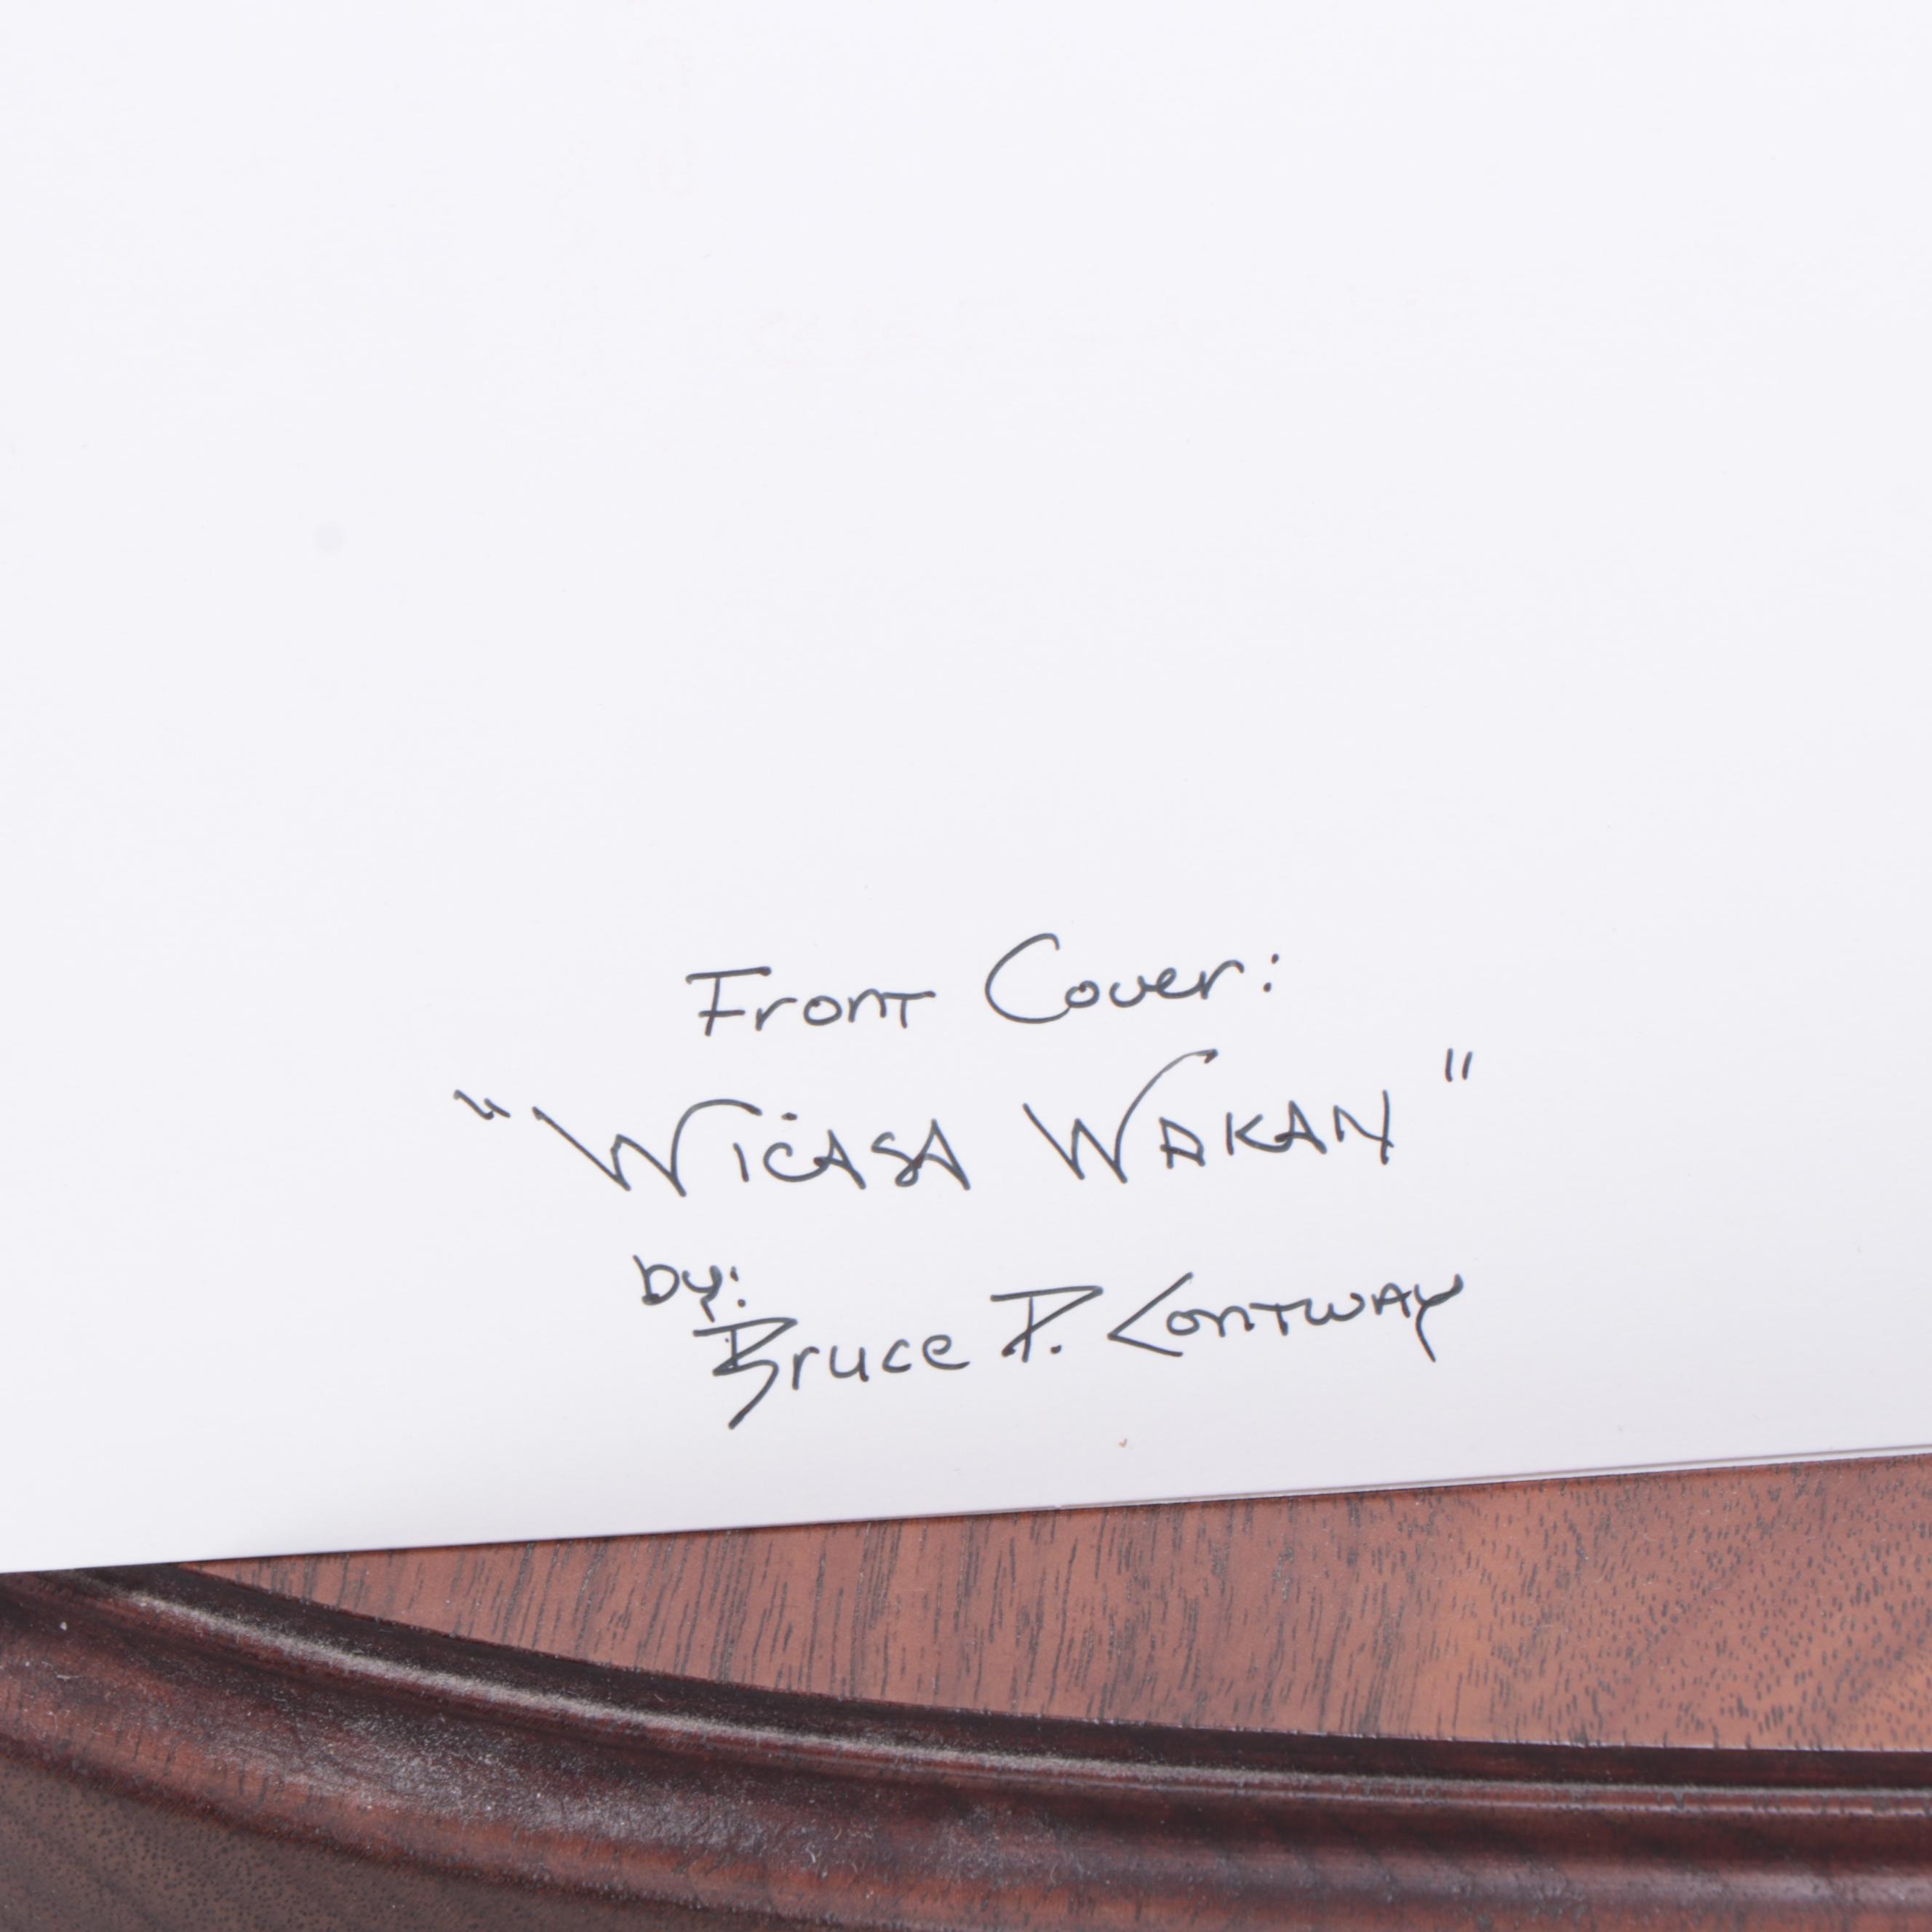 Front Cover:
"Wićasa Wakan"
by:
Bruce P. Contway